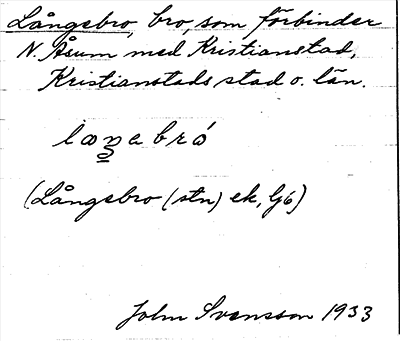 Långebro, bro, som förbinder
N. Åsum med Kristianstad,
Kristianstads stad o. län.
(Långebro (stn) ek, Gj6)
John Svensson 1933